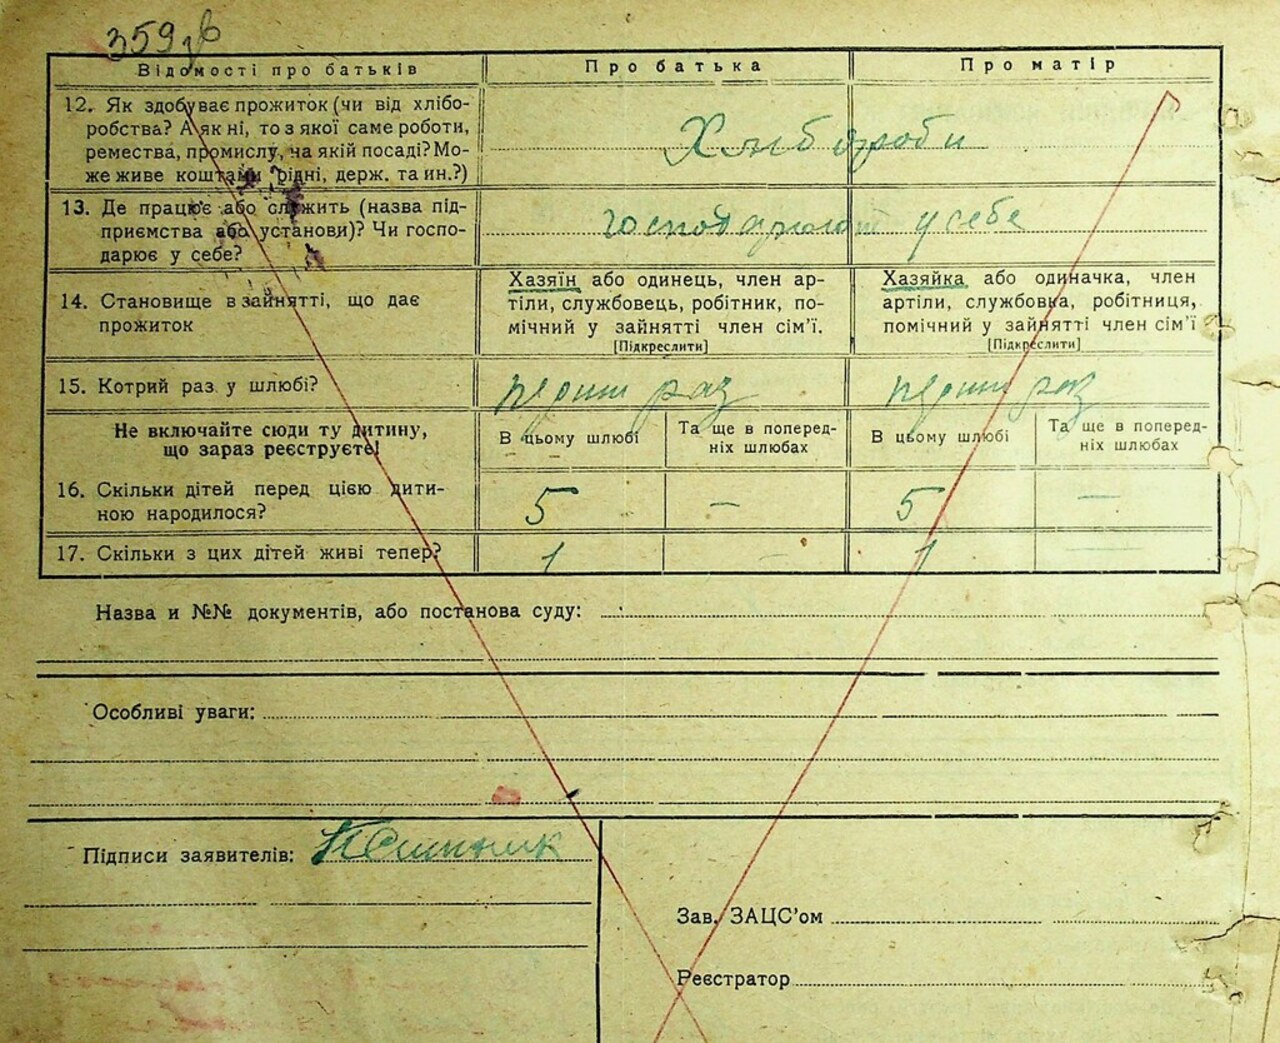 359 зв
Відомості про батьків
Про батька
Про матір
12. Як здобуває прожиток (чи від хлібо-
робства? А як ні, то з якої саме роботи,
ремества, промислу, на якій посаді? Мо-
же живе коштами рідні, держ. та ин.?)
Хлібороби
13. Де працює або служить (назва під-
приємства або установи)? Чи госпо-
дарює у себе?
господарюют у себе
14. Становище в зайнятті, що дає
прожиток
Хазяїн або одинець, член ар-
тіли, службовець, робітник, по-
мічний у зайнятті член сім'ї.
[Підкреслити]
Хазяйка або одиначка, член
артіли, службовка, робітниця,
помічний у зайнятті член сім'ї
[Підкреслити]
15. Котрий раз у шлюбі?
перши раз
перши раз
Не включайте сюди ту дитину,
що зараз реєструєте!
В цьому шлюбі
Та ще в поперед-
ніх шлюбах
В цьому шлюбі
Та ще в поперед-
ніх шлюбах
16. Скільки дітей перед цією дити-
ною народилося?
5
—
5
—
17. Скільки з цих дітей живі тепер?
1
—
1
—
Назва и №№ документів, або постанова суду:
Особливі уваги:
Підписи заявителів:
Зав. ЗАЦС'ом
Реєстратор